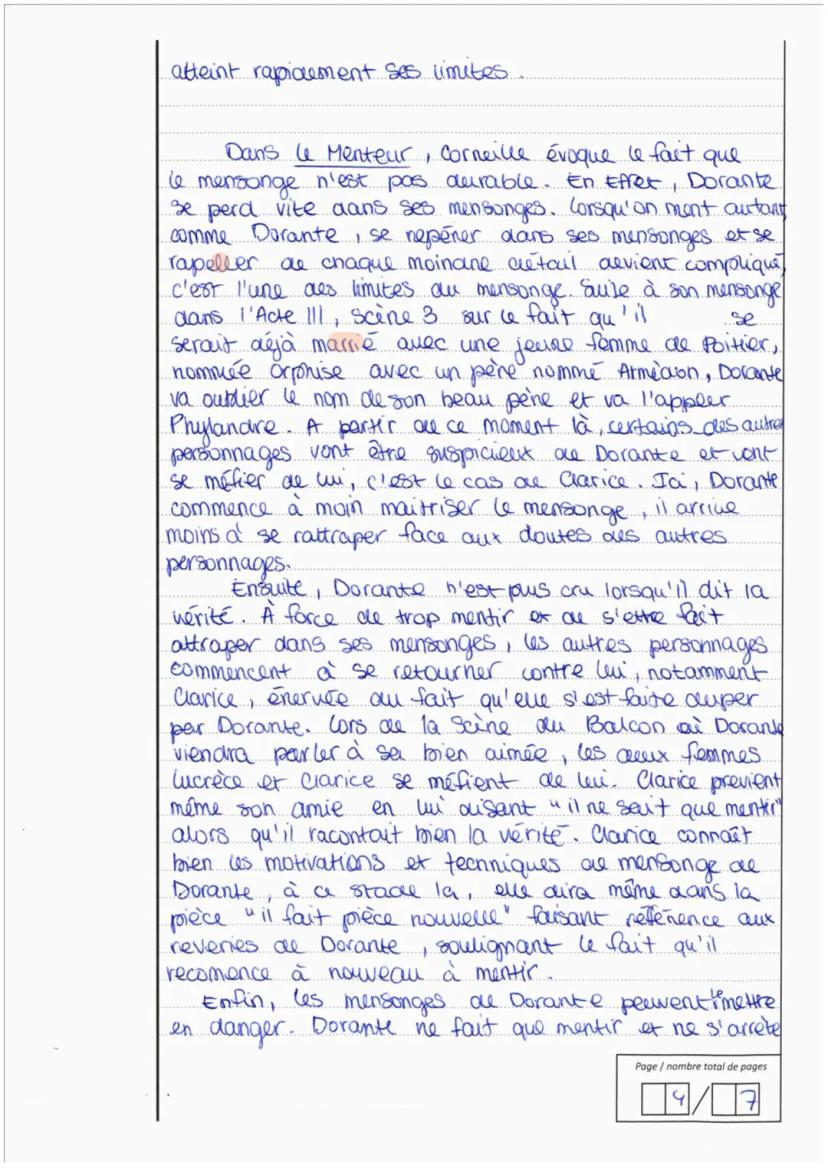 atteint rapidement ses limites.
Dans le Menteur, Corneille évoque le fait que
le mensonge n'est pas durable. En Effet, Dorante
se perd vite dans ses mensonges. Lorsqu'on ment autant
comme Dorante, se repérer dans ses mensonges et se
rapeller de chaque moindre détail devient compliqué,
c'est l'une des limites du mensonge. Suite à son mensonge
dans l'Acte III, Scène 3 sur le fait qu'il se
serait déjà marrié avec une jeune femme de Poitier,
nommée Orphise avec un père nommé Armédon, Dorante
va oublier le nom de son beau père et va l'appeler
Phylandre. A partir de ce moment là, certains des autres
personnages vont être suspicieux de Dorante et vont
se méfier de lui, c'est le cas de Clarice. Ici, Dorante
commence à moin maitriser le mensonge, il arrive
moins à se rattraper face aux doutes des autres
personnages.
Ensuite, Dorante n'est plus cru lorsqu'il dit la
vérité. À force de trop mentir et de s'etre fait
attraper dans ses mensonges, les autres personnages
commencent à se retourner contre lui, notamment
Clarice, énervée du fait qu'elle s'est faite duper
par Dorante. Lors de la Scène du Balcon où Dorante
viendra parler à sa bien aimée, les deux femmes
Lucrèce et Clarice se méfient de lui. Clarice previent
même son amie en lui disant "il ne sait que mentir"
alors qu'il racontait bien la vérité. Clarice connaît
bien les motivations et techniques de mensonge de
Dorante, à ce stade la, elle dira même dans la
pièce "il fait pièce nouvelle" faisant référence aux
reveries de Dorante, soulignant le fait qu'il
recomence à nouveau à mentir.
Enfin, les mensonges de Dorante peuvent le mettre
en danger. Dorante ne fait que mentir et ne s'arrête
Page / nombre total de pages
4/7